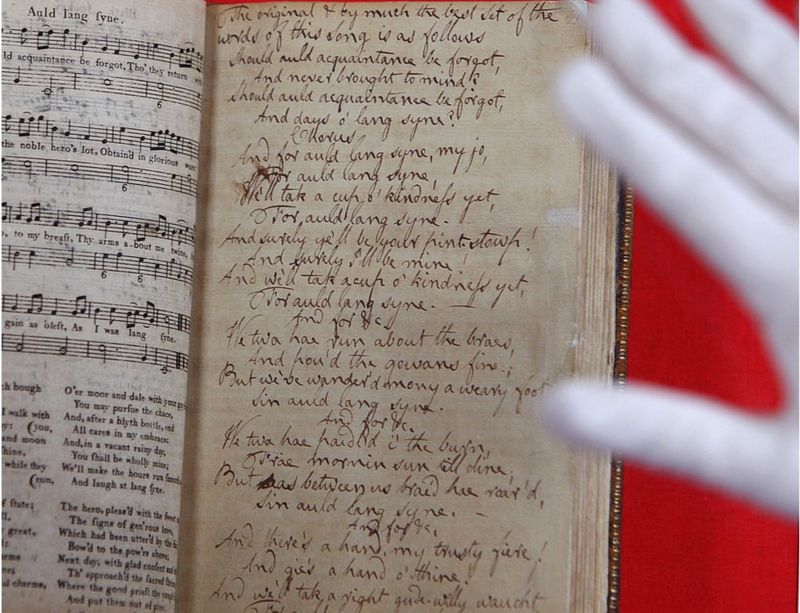 Auld lang ſyne.
ld acquaintance be forgot, Tho' they return
6
the noble hero's lot, Obtain'd in glorious
6 6
to my breaſt, Thy arms a-bout me twine,
6
gain as bleſt, As I was lang ſyne.
6
ch bough
walk with
(you,
and moon
hine,
while they
(run,
of ſtate;
great,
charms,
O'er moor and dale with your
You may purſue the chace,
And, after a blyth bottle, end
All cares in my embrace:
And, in a vacant rainy day,
You ſhall be wholly mine;
We'll make the hours run
And laugh at lang ſyne.
The hero, pleas'd with the ſweet
The ſigns of gen'rous love,
Which had been utter'd by the
Bow'd to the pow'rs above;
Next day, with glad conſent and
Th' approach'd the ſacred
Where the good prieſt the
And put them out of pine.
The original & by much the best set of the
words of this song is as follows
Should auld acquaintance be forgot,
And never brought to mind?
Should auld acquaintance be forgot,
And days o' lang syne?
Chorus
And for auld lang syne, my jo,
For auld lang syne,
We'll tak a cup o' kindneſs yet,
For auld lang syne.
And surely ye'll be your pint-stowp!
And surely I'll be mine!
And we'll tak a cup o' kindneſs yet,
For auld lang syne. —
And for &c.
We twa hae run about the braes,
And pou'd the gowans fine;
But we've wander'd mony a weary foot
Sin auld lang syne.
And for &c.
We twa hae paidl'd i' the burn,
Frae mornin sun till dine;
But seas between us braid hae roar'd,
Sin auld lang syne. —
And for &c.
And there's a hand, my trusty fiere!
And gie's a hand o' thine!
And we'll tak a right gude-willy waught
For